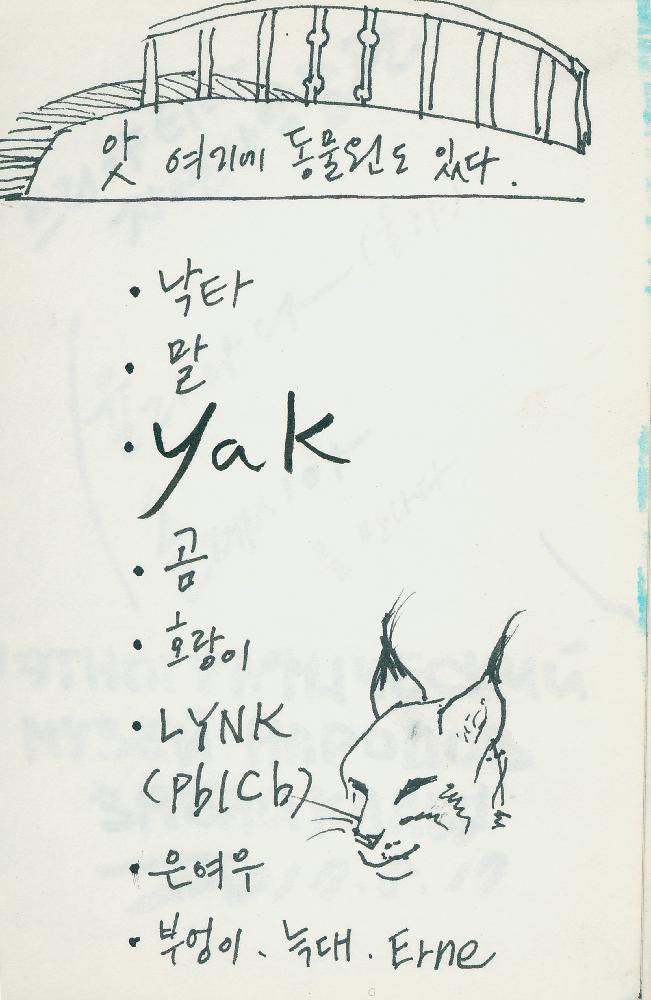 앗 여기에 동물원도 있다.
• 낙타
• 말
• yak
• 곰
• 호랑이
• LYNK
(РЫСЬ)
• 은여우
• 부엉이. 늑대. Erne